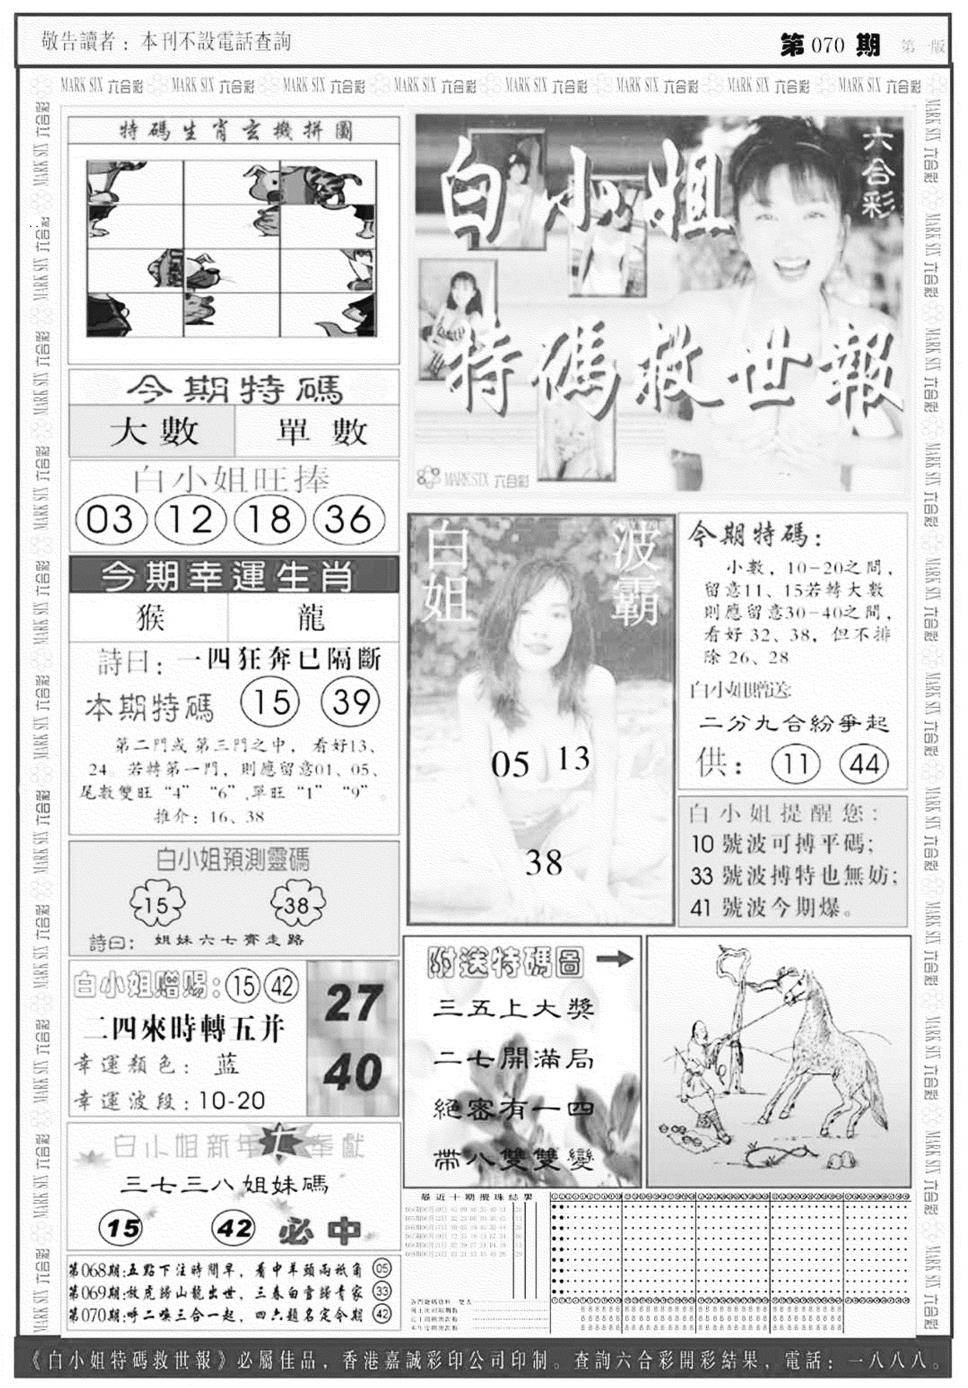 敬告讀者：本刊不設電話查詢
第070期 第一版
MARK SIX 六合彩 MARK SIX 六合彩 MARK SIX 六合彩 MARK SIX 六合彩 MARK SIX 六合彩 MARK SIX 六合彩 MARK SIX 六合彩 MARK SIX 六合彩
特碼生肖玄機拼圖
今期特碼
大數 單數
白小姐旺捧
03 12 18 36
今期幸運生肖
猴 龍
詩曰：一四狂奔已隔斷
本期特碼 15 39
第二門或第三門之中，看好13、
24。若轉第一門，則應留意01、05、
尾數雙旺“4”“6”,單旺“1”“9”。
推介：16、38
白小姐預測靈碼
15 38
詩曰：姐妹六七齊走路
白小姐贈賜：15 42
二四來時轉五并
幸運顏色：蓝
幸運波段：10-20
27
40
白小姐新年 奉獻
三七三八姐妹碼
15 42 必中
第068期:五點下注時間早，看中羊頭兩祇角 05
第069期:放虎歸山龍出世、三春白雪歸青家 33
第070期:呼二喚三合一起，四六題名定今期 42
六合彩
白小姐
特碼救世報
MARK SIX 六合彩
白姐
波霸
05 13
38
今期特碼：
小數，10-20之間，
留意11、15若轉大數
則應留意30-40之間，
看好32、38，但不排
除26、28
白小姐贈送:
二分九合紛爭起
供：11 44
白小姐提醒您：
10號波可搏平碼；
33號波搏特也無妨；
41號波今期爆。
附送特碼圖
三五上大獎
二七開滿局
絕密有一四
帶八雙雙變
最近十期攪珠結果
《白小姐特碼救世報》必屬佳品，香港嘉誠彩印公司印制。查詢六合彩開彩結果，電話：一八八八。